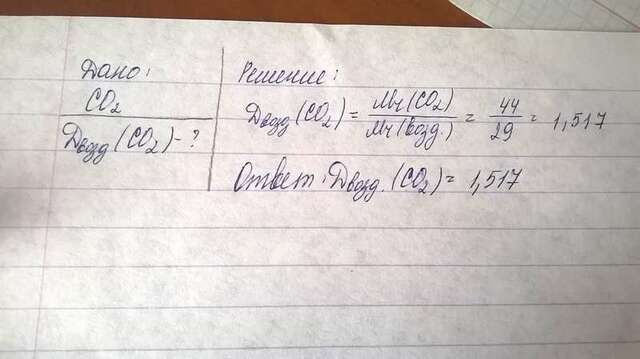 Дано:
CO₂
Dвозд (CO₂) - ?
Решение:
Dвозд (CO₂) = Mч(CO₂) / Mч(возд.) = 44 / 29 = 1,517
Ответ: Dвозд. (CO₂) = 1,517